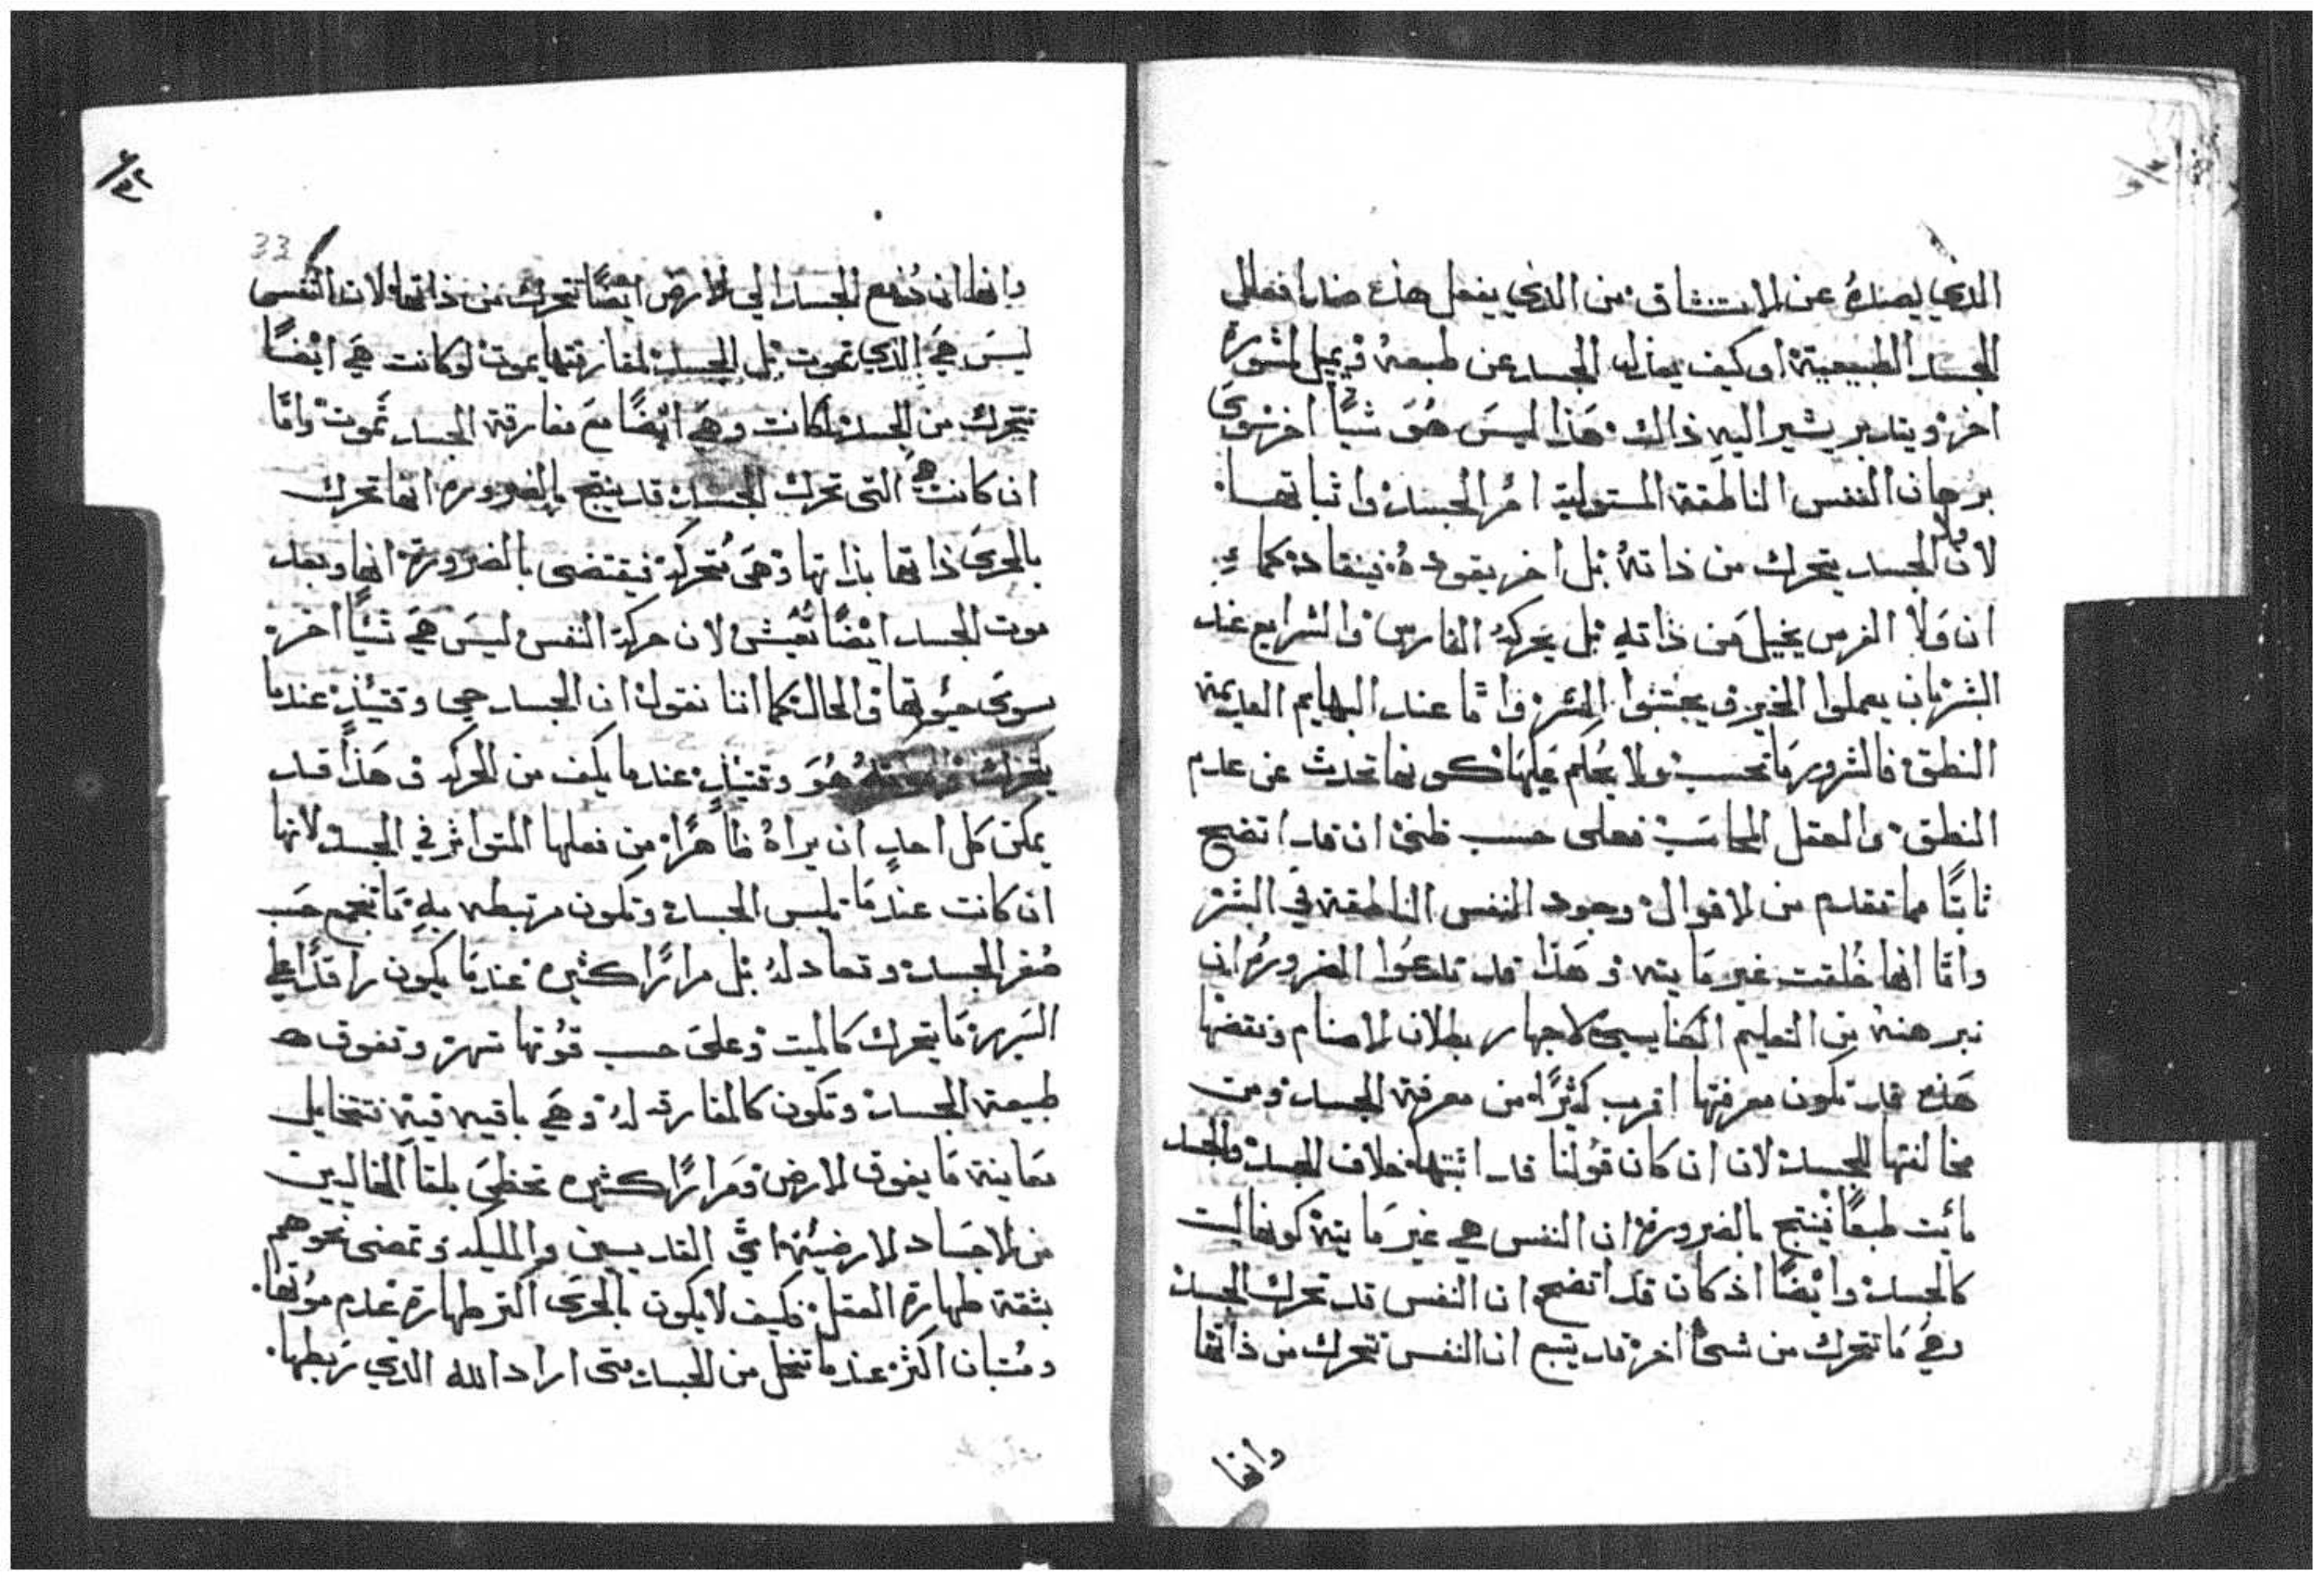 الذي يصده عن الاستنشاق من الذي يفعل هذه ضد افعال
الجسد الطبيعية او كيف يعازل الجسد عن طبعه ويميل لمشورة
اخر ويتدبر يشير اليه ذالك هَذا ليسَ هُوَ شيًا اخر سِوَى
برهان النفس الناطقة المستولية امر الجسد واثباتها
لان لا الجسد يتحرك من ذاته بل اخر يقوده فينقاد كما
ان ولا الفرس يخيل من ذاته بل يحركه الفارس والشرايع عند
البشر بان يعملوا الخير ويجتنبوا الشر واما عند البهايم العديمة
النطق فالشرور ما تحسب ولا يحكم عليها كونها تحدث عن عدم
النطق والعقل المحاسب فعلى حسب ظني ان قد اتضح
ثابتًا مما تقدم من الاقوال وجود النفس الناطقة في البشر
واما انها خُلقت غير مَايته وهَذا قد تدعوا الضرورة ان
نبرهنه من التعليم الكنايسي لاجهار بطلان الاصنام ونقضها
هَذه قد تكون معرفتها اقرب كثيرًا من معرفة الجسد ومن
مخالفتها للجسد لان ان كان قولنا قد اثبتها خلاف الجسد والجسد
مائت طبعًا ينتج بالضرورة ان النفس هي غير مَايتة كونها ليست
كالجسد وايضًا اذ كان قد اتضح ان النفس قد تحرك الجسد
وهي مَا تتحرك من شىء اخر قد ينتج ان النفس تتحرك من ذاتها
وانها
33
وانها ان دُفع الجسد الي الارض ايضًا تتحرك من ذاتها لان النفس
ليسَ هيَ الذي تموت بل الجسد لمفارقتها يموت لو كانت هيَ ايضًا
تتحرك من الجسد لكانت وهيَ ايضًا معَ مفارقة الجسد تموت وامَّا
ان كانت هي التى تحرك الجسد قد ينتج بالضروره انها تحرك
بالحرىَ ذاتها بذاتها وهىَ متحركة فيقتضى بالضرورة انها وبعد
موت الجسد ايضًا تعيش لان حركة النفس ليسَ هيَ شيًا اخر
سوىَ حيوتها والحالة كما اننا نقول ان الجسد حي وقتيذٍ عندما
يتحرك وموته هُوَ وقتيذٍ عندما يكف من الحركه وهَذا قد
يمكن كل احدٍ ان يراهُ ظاهرًا من فعلها المتواتر في الجسد لانها
ان كانت عندمَا تلبس الجسد وتكون مرتبطه بهِ مَا تنجمع حَسب
صُغر الجسد وتعادله بل مرارًا كثيره عندمَا يكون راقدًا علي
السَرير مَا يتحرك كالميت وعلىَ حسب قوتها تسهر وتفوق
طبيعة الجسد وتكون كالمفارقه لهُ وهيَ باقيه فيهِ تتخايل
معاينة مَا يفوق الارض ومَرارًا كثيره تحظىَ بلقاَ الخاليين
من الاجسَاد الارضيَّة ايَّ القديسين والمليكه وتمضى نحوهم
بثقة طهارة العقل فكيف لا يكون بالحرىَ اكتر طهارة عدم موتها
ومُتبان اكثر عندما تنحل من الجسد متى اراد الله الذي رَبطها